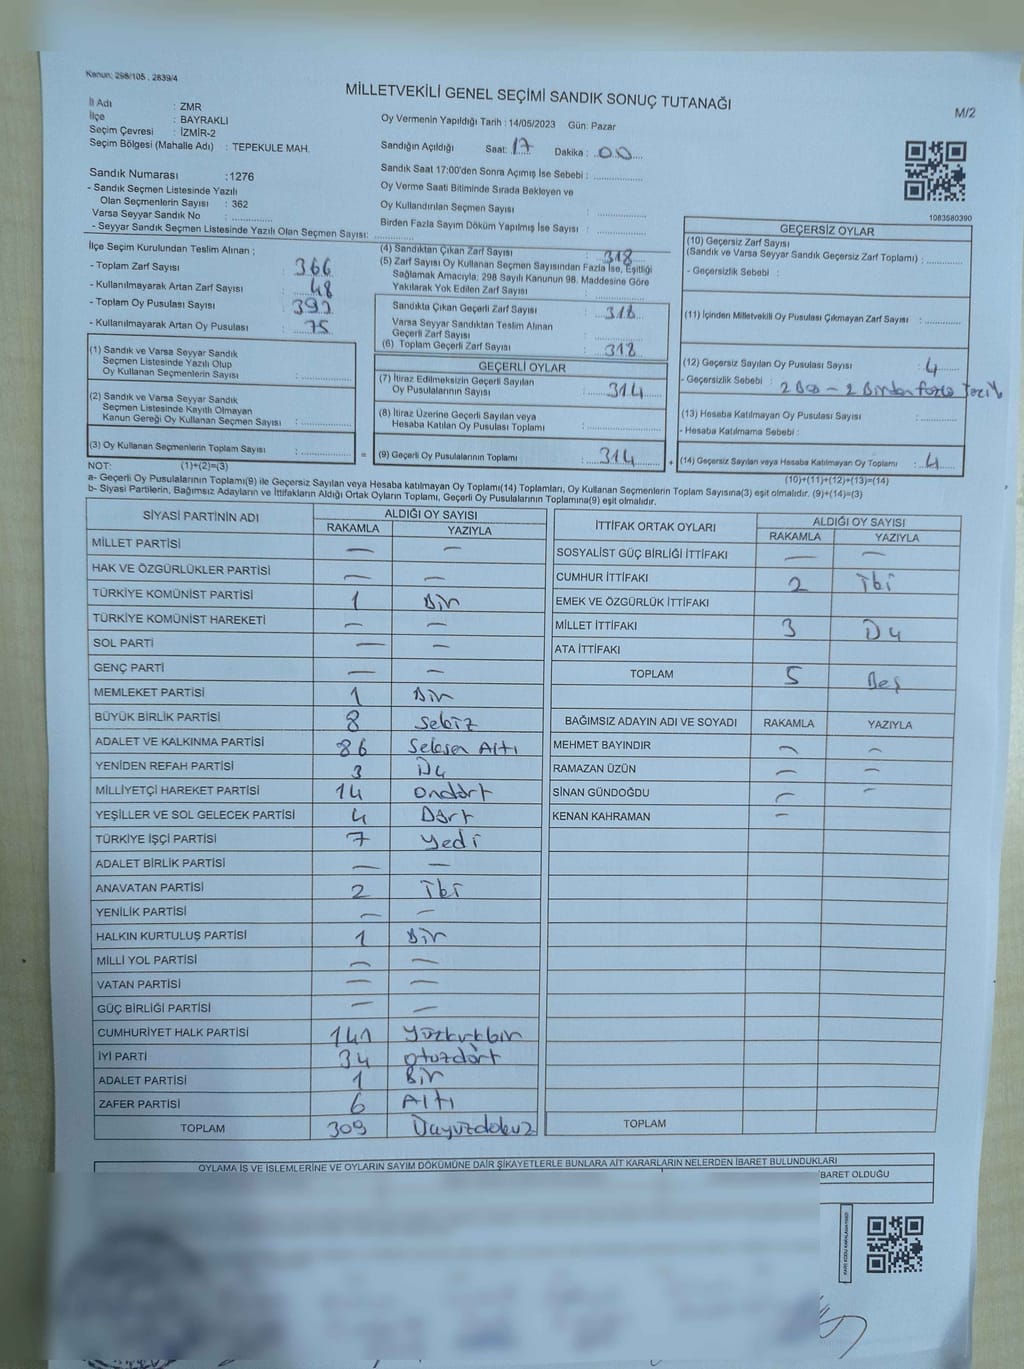 Kanun: 298/105 , 2839/4
MİLLETVEKİLİ GENEL SEÇİMİ SANDIK SONUÇ TUTANAĞI
M/2
İl Adı : ZMR
İlçe : BAYRAKLI
Seçim Çevresi : İZMİR-2
Seçim Bölgesi (Mahalle Adı) : TEPEKULE MAH.
Oy Vermenin Yapıldığı Tarih : 14/05/2023 Gün: Pazar
Sandığın Açıldığı Saat: 17 Dakika : 00
Sandık Saat 17:00'den Sonra Açımış İse Sebebi :
Oy Verme Saati Bitiminde Sırada Bekleyen ve
Oy Kullandırılan Seçmen Sayısı :
Birden Fazla Sayım Döküm Yapılmış İse Sayısı :
Sandık Numarası :1276
- Sandık Seçmen Listesinde Yazılı
Olan Seçmenlerin Sayısı : 362
Varsa Seyyar Sandık No :
- Seyyar Sandık Seçmen Listesinde Yazılı Olan Seçmen Sayısı:
1083580390
İlçe Seçim Kurulundan Teslim Alınan ;
- Toplam Zarf Sayısı : 366
- Kullanılmayarak Artan Zarf Sayısı : 48
- Toplam Oy Pusulası Sayısı : 393
- Kullanılmayarak Artan Oy Pusulası : 75
(1) Sandık ve Varsa Seyyar Sandık
Seçmen Listesinde Yazılı Olup
Oy Kullanan Seçmenlerin Sayısı :
(2) Sandık ve Varsa Seyyar Sandık
Seçmen Listesinde Kayıtlı Olmayan
Kanun Gereği Oy Kullanan Seçmen Sayısı :
(3) Oy Kullanan Seçmenlerin Toplam Sayısı :
NOT: (1)+(2)=(3)
(4) Sandıktan Çıkan Zarf Sayısı : 318
(5) Zarf Sayısı Oy Kullanan Seçmen Sayısından Fazla İse, Eşitliği
Sağlamak Amacıyla; 298 Sayılı Kanunun 98. Maddesine Göre
Yakılarak Yok Edilen Zarf Sayısı :
Sandıkta Çıkan Geçerli Zarf Sayısı : 318
Varsa Seyyar Sandıktan Teslim Alınan
Geçerli Zarf Sayısı :
(6) Toplam Geçerli Zarf Sayısı : 318
GEÇERLİ OYLAR
(7) İtiraz Edilmeksizin Geçerli Sayılan
Oy Pusulalarının Sayısı : 314
(8) İtiraz Üzerine Geçerli Sayılan veya
Hesaba Katılan Oy Pusulası Toplamı :
= (9) Geçerli Oy Pusulalarının Toplamı : 314
GEÇERSİZ OYLAR
(10) Geçersiz Zarf Sayısı
(Sandık ve Varsa Seyyar Sandık Geçersiz Zarf Toplamı) :
- Geçersizlik Sebebi :
(11) İçinden Milletvekili Oy Pusulası Çıkmayan Zarf Sayısı :
(12) Geçersiz Sayılan Oy Pusulası Sayısı : 4
- Geçersizlik Sebebi : 2 Boş - 2 Birden fazla
(13) Hesaba Katılmayan Oy Pusulası Sayısı :
- Hesaba Katılmama Sebebi :
+ (14) Geçersiz Sayılan veya Hesaba Katılmayan Oy Toplamı : 4
(10)+(11)+(12)+(13)=(14)
a- Geçerli Oy Pusulalarının Toplamı(9) ile Geçersiz Sayılan veya Hesaba katılmayan Oy Toplamı(14) Toplamları, Oy Kullanan Seçmenlerin Toplam Sayısına(3) eşit olmalıdır. (9)+(14)=(3)
b- Siyasi Partilerin, Bağımsız Adayların ve İttifakların Aldığı Ortak Oyların Toplamı, Geçerli Oy Pusulalarının Toplamına(9) eşit olmalıdır.
SİYASİ PARTİNİN ADI ALDIĞI OY SAYISI
RAKAMLA YAZIYLA
MİLLET PARTİSİ — —
HAK VE ÖZGÜRLÜKLER PARTİSİ — —
TÜRKİYE KOMÜNİST PARTİSİ 1 Bir
TÜRKİYE KOMÜNİST HAREKETİ — —
SOL PARTİ — —
GENÇ PARTİ — —
MEMLEKET PARTİSİ 1 Bir
BÜYÜK BİRLİK PARTİSİ 8 Sekiz
ADALET VE KALKINMA PARTİSİ 86 Seksen Altı
YENİDEN REFAH PARTİSİ 3 Üç
MİLLİYETÇİ HAREKET PARTİSİ 14 ondört
YEŞİLLER VE SOL GELECEK PARTİSİ 4 Dört
TÜRKİYE İŞÇİ PARTİSİ 7 Yedi
ADALET BİRLİK PARTİSİ — —
ANAVATAN PARTİSİ 2 İki
YENİLİK PARTİSİ — —
HALKIN KURTULUŞ PARTİSİ 1 Bir
MİLLİ YOL PARTİSİ — —
VATAN PARTİSİ — —
GÜÇ BİRLİĞİ PARTİSİ — —
CUMHURİYET HALK PARTİSİ 141 Yüzkırkbir
İYİ PARTİ 34 otuzdört
ADALET PARTİSİ 1 Bir
ZAFER PARTİSİ 6 Altı
TOPLAM 309 Üçyüzdokuz
İTTİFAK ORTAK OYLARI ALDIĞI OY SAYISI
RAKAMLA YAZIYLA
SOSYALİST GÜÇ BİRLİĞİ İTTİFAKI — —
CUMHUR İTTİFAKI 2 İki
EMEK VE ÖZGÜRLÜK İTTİFAKI
MİLLET İTTİFAKI 3 Üç
ATA İTTİFAKI
TOPLAM 5 Beş
BAĞIMSIZ ADAYIN ADI VE SOYADI RAKAMLA YAZIYLA
MEHMET BAYINDIR — —
RAMAZAN ÜZÜN — —
SİNAN GÜNDOĞDU — —
KENAN KAHRAMAN —
TOPLAM
OYLAMA İŞ VE İŞLEMLERİNE VE OYLARIN SAYIM DÖKÜMÜNE DAİR ŞİKAYETLERLE BUNLARA AİT KARARLARIN NELERDEN İBARET BULUNDUKLARI
İBARET OLDUĞU